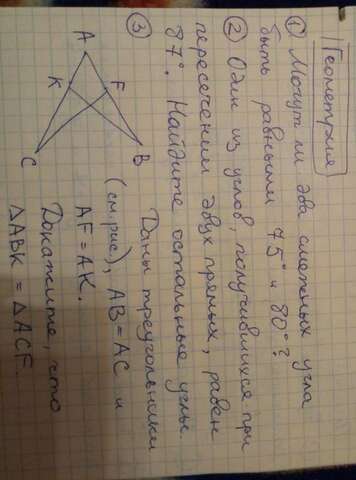 Геометрия
① Могут ли два смежных угла
быть равными 75° и 80°?
② Один из углов, получившихся при
пересечении двух прямых, равен
87°. Найдите остальные углы.
③ Даны треугольники
(см. рис.), AB = AC и
AF = AK.
Докажите, что
△ABK = △ACF.
B
F
A
K
C